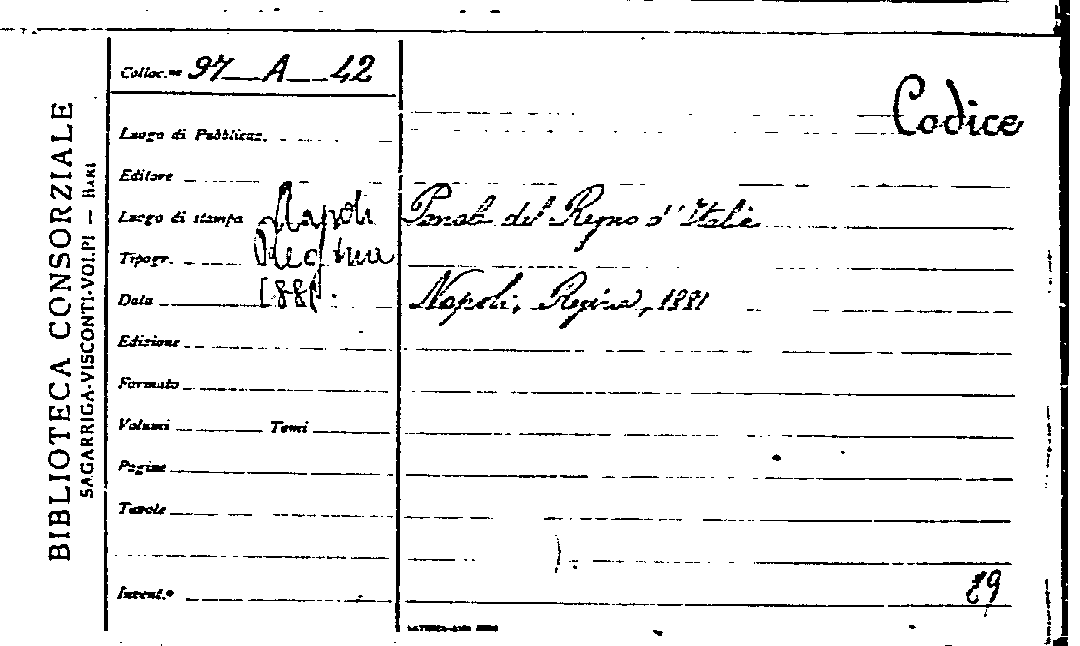 BIBLIOTECA CONSORZIALE
SAGARRIGA-VISCONTI-VOLPI — BARI
Colloc.ne 97 A 42
Codice
Luogo di Pubblicaz.
Editore
Luogo di stampa Napoli
Penale del Regno d'Italia
Tipogr.
Data 1881.
Napoli, Regina, 1881
Edizione
Formato
Volumi Tomi
Pagine
Tavole
Invent.°
89